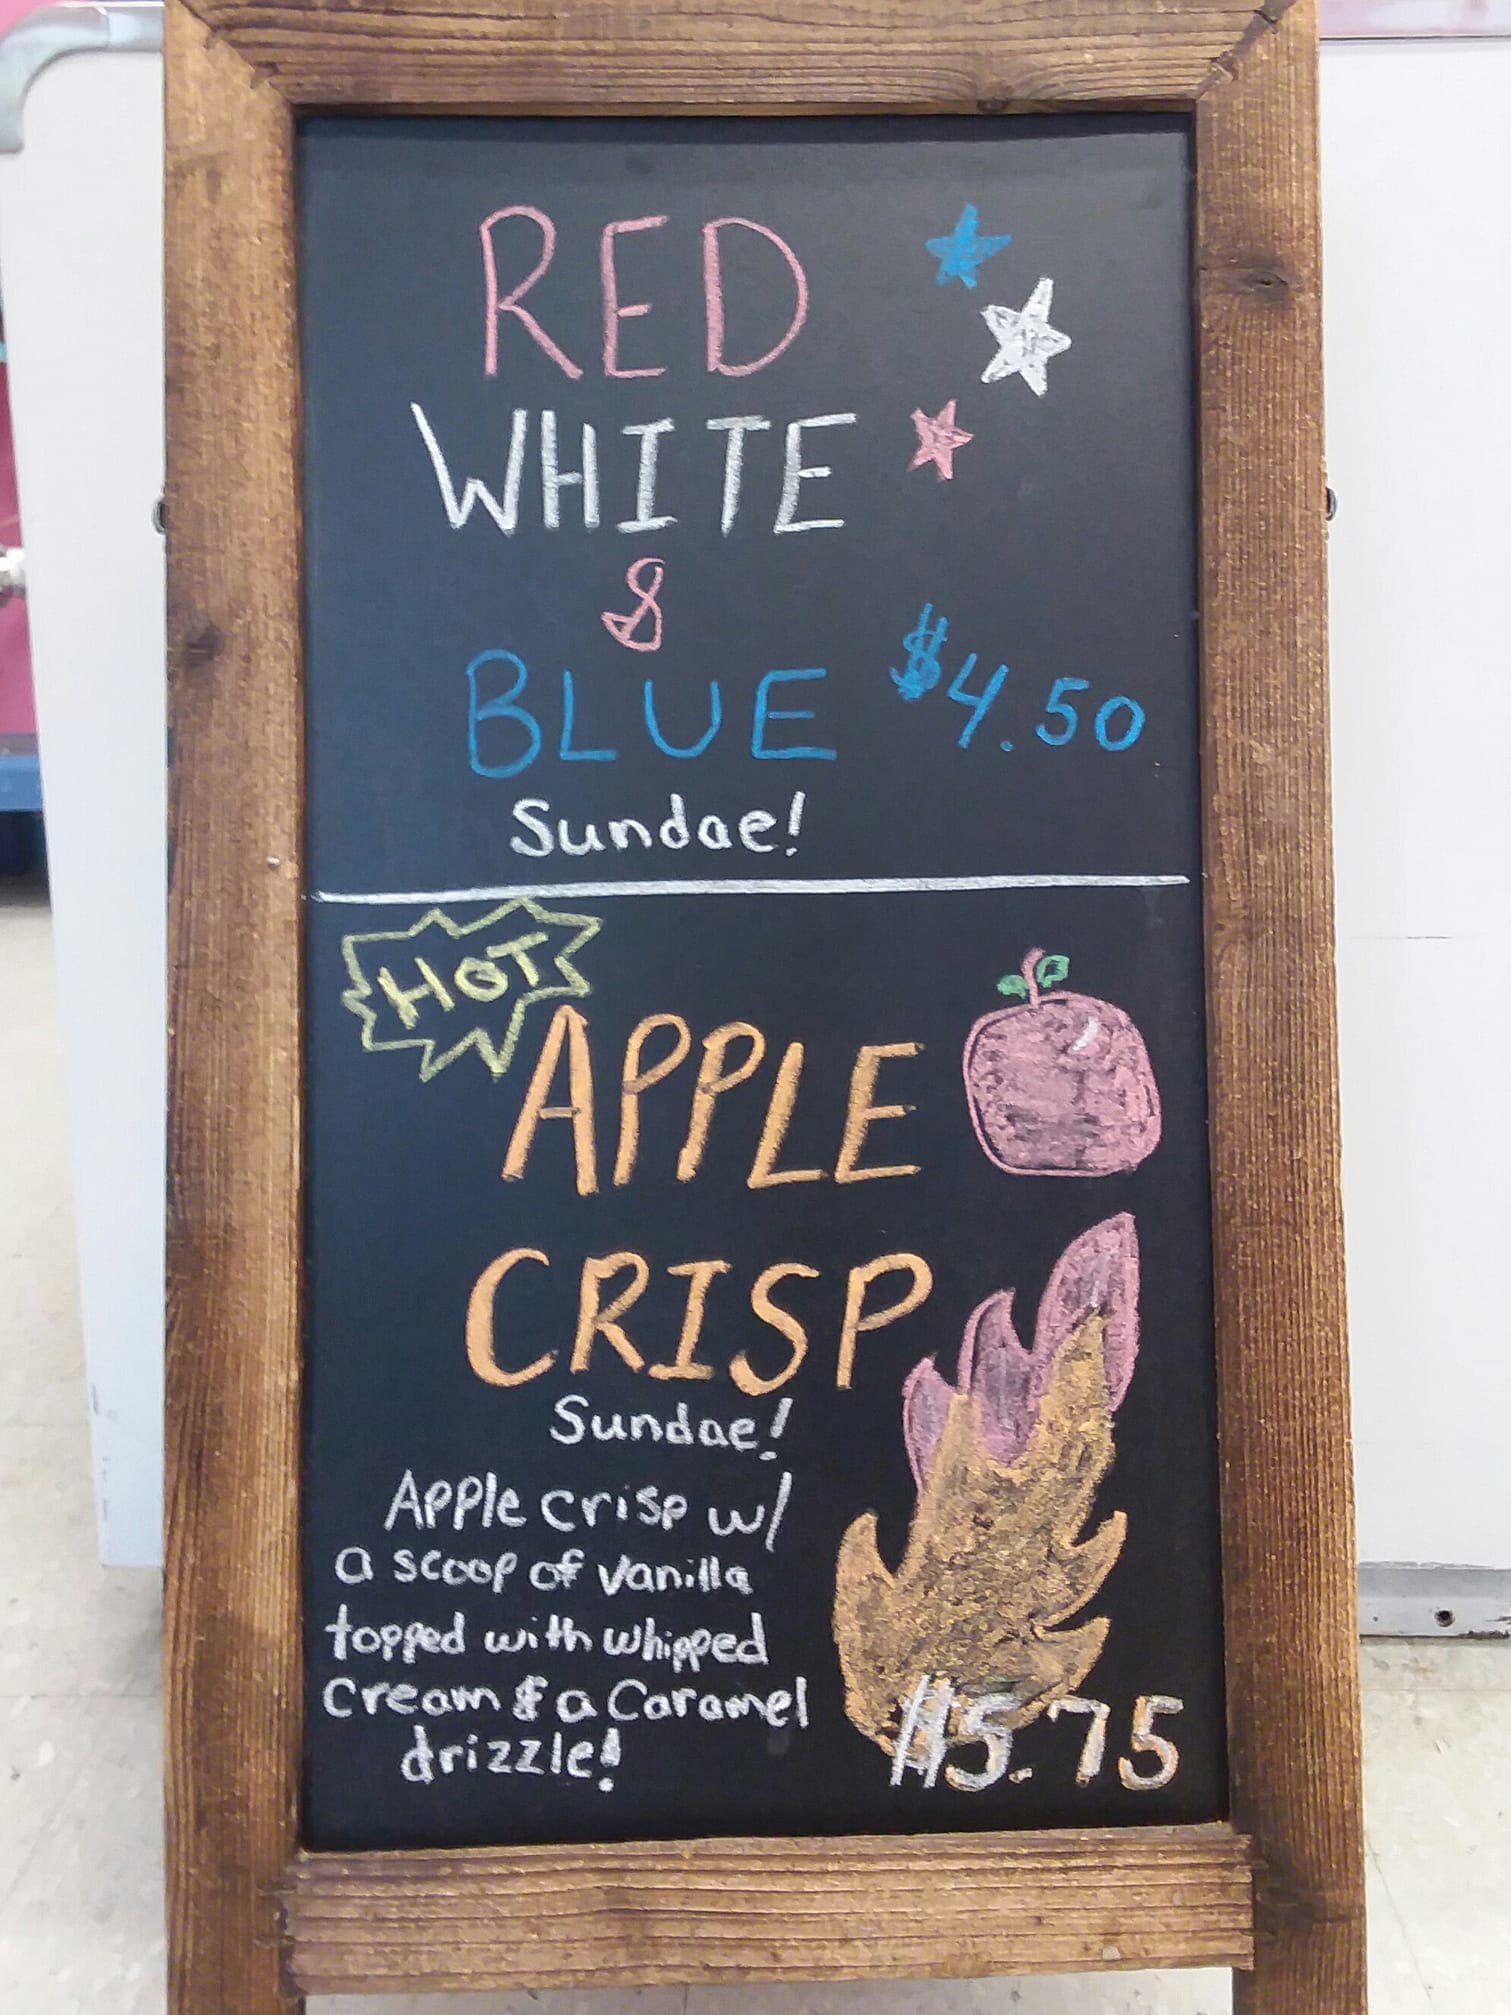 RED
WHITE
&
BLUE $4.50
Sundae!
HOT
APPLE
CRISP
Sundae!
Apple crisp w/
a scoop of vanilla
topped with whipped
cream & a caramel
drizzle!
$5.75